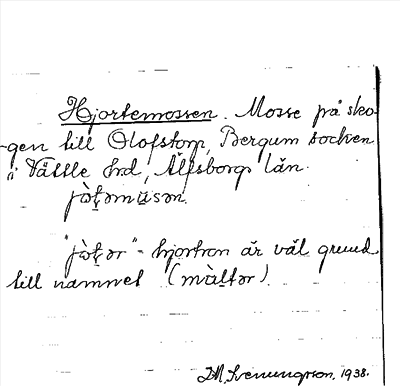 Hjortemossen. Mosse på sko-
-gen till Olofstorp, Bergum socken
i Vättle hd, Älfsborgs län.
"jòt̠ər" - hjortron är väl grund
till namnet (múltər).
J.M. Svenungsson, 1938.